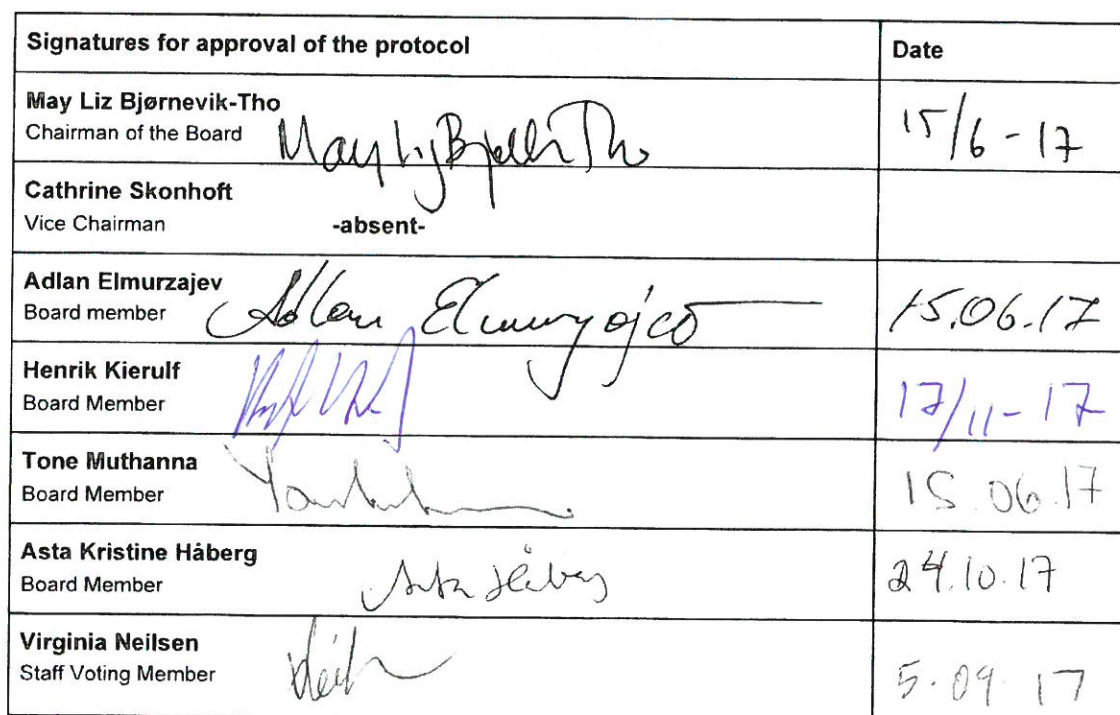 Signatures for approval of the protocol Date
May Liz Bjørnevik-Tho
Chairman of the Board 15/6-17
Cathrine Skonhoft
Vice Chairman -absent-
Adlan Elmurzajev
Board member Adlan Elmurzajev 15.06.17
Henrik Kierulf
Board Member 17/11-17
Tone Muthanna
Board Member 15.06.17
Asta Kristine Håberg
Board Member Asta Håberg 24.10.17
Virginia Neilsen
Staff Voting Member 5.09.17